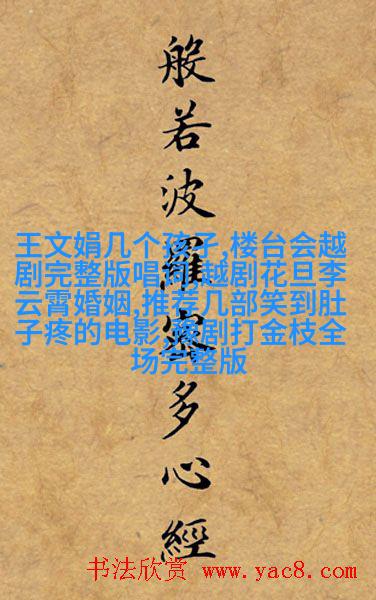 般若波羅蜜多心經
王文娟几个孩子,楼台会越
剧完整版唱词,越剧花旦李
云霄婚姻,推荐几部笑到肚
子疼的电影,豫剧打金枝全
场完整版
书法欣赏 www.yac8.com